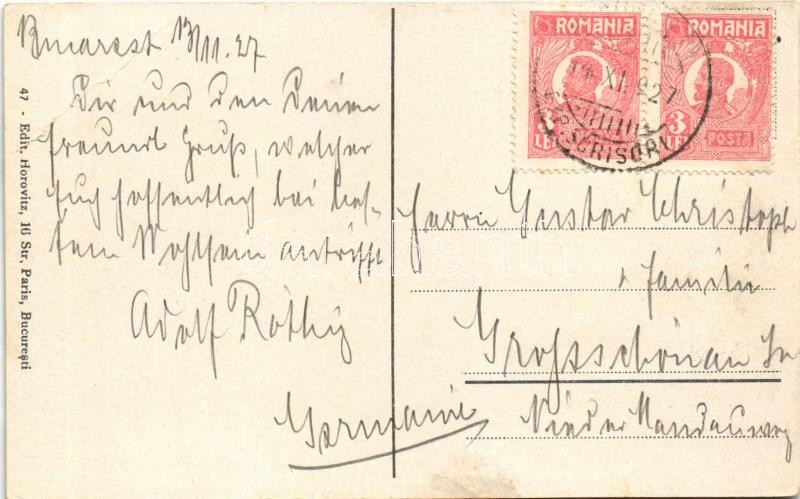 Bucarest 13/11.27
Dir und den Deinen
freundl Gruß, welcher
Euch hoffentlich bei bes-
tem Wohlsein antrifft
Adolf Röthig
47 - Edit. Horovitz, 16 Str. Paris, Bucureşti
ROMANIA
3
LEI
ROMANIA
3
LEI
POSTA
XI 927
SCRISORI
Herrn Gustav Christoph
+ Familie
Grossschönau Sa
Nieder Mandauweg
Germanie